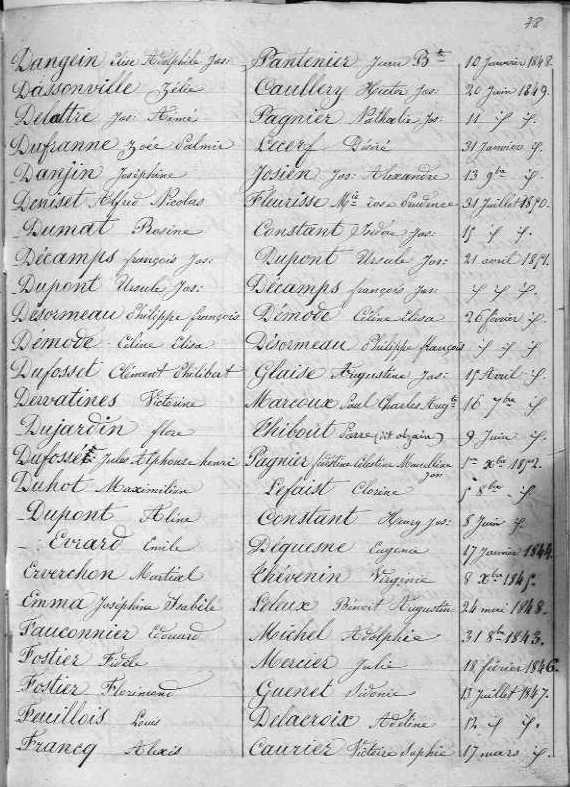 38
Dangein Elise Adolphile Jos: Pantenier Jean Bte 10 Janvier 1848.
Dassonville Zélie Caullery Hector Jos: 20 Juin 1849.
Delattre Jos: Aimé Pagnier Nathalie Jos: 11 if if.
Dufranne Zoée Palmire Lecerf Désiré 31 Janvier if.
Danjin Joséphine Josien Jos: Alexandre 13 9bre if
Deniset Alfred Nicolas Fleurisse Mie rose Prudence 31 Juillet 1850.
Dumat Rosine Constant Isidore Jos: 15 if if.
Décamps françois Jos: Dupont Ursule Jos: 21 avril 1851.
Dupont Ursule Jos: Décamps françois Jos: if if if.
Désormeau Philippe françois Démode Céline Elisa 26 fevrier if.
Demode Céline Elisa Désormeau Philippe françois if if if.
Dufosset Clément Philibert Glaise Augustine Jos: 15 Avril if.
Dervatines Victorine Marcoux Paul Charles Augte 16 7bre if
Dujardin flore Thibout Pierre (dit 9 Juin if.
Dufosset: Jules Alphonse henri Pagnier Célestine Jos 1er Xbre 1852.
Duhot Maximilien Lefaist Clorine 5 8bre if
Dupont Aline Constant Henry Jos: 8 Juin if.
Evrard Emile Déguesne Eugénie 17 Janvier 1844.
Erverchon Martial Thévenin Virginie 8 Xbre 1845.
Emma Joséphine Isabèle Leleux Bénoit Augustin 24 mai 1848.
Fauconnier Edouard Michel Adolphie 31 8bre 1843.
Fostier Fidèle Mercier Julie 18 février 1846.
Fostier Florimond Guenet Sidonie 13 Juillet 1847.
Feuillois Louis Delacroix Adeline 12 if if.
Francq Alexis Caurier Victoire Sophie 17 mars if.